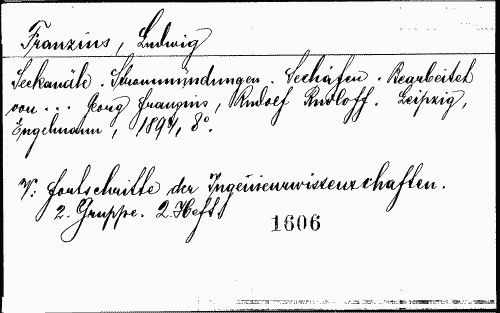 Franzius, Ludwig
Seekanäle. Strommündungen. Seehäfen. Bearbeitet
von... Georg Franzius, Rudolf Rudloff. Leipzig,
Engelmann, 1894, 8°.
V: Fortschritte der Ingenieurwissenschaften.
2. Gruppe. 2. Heft.
1606